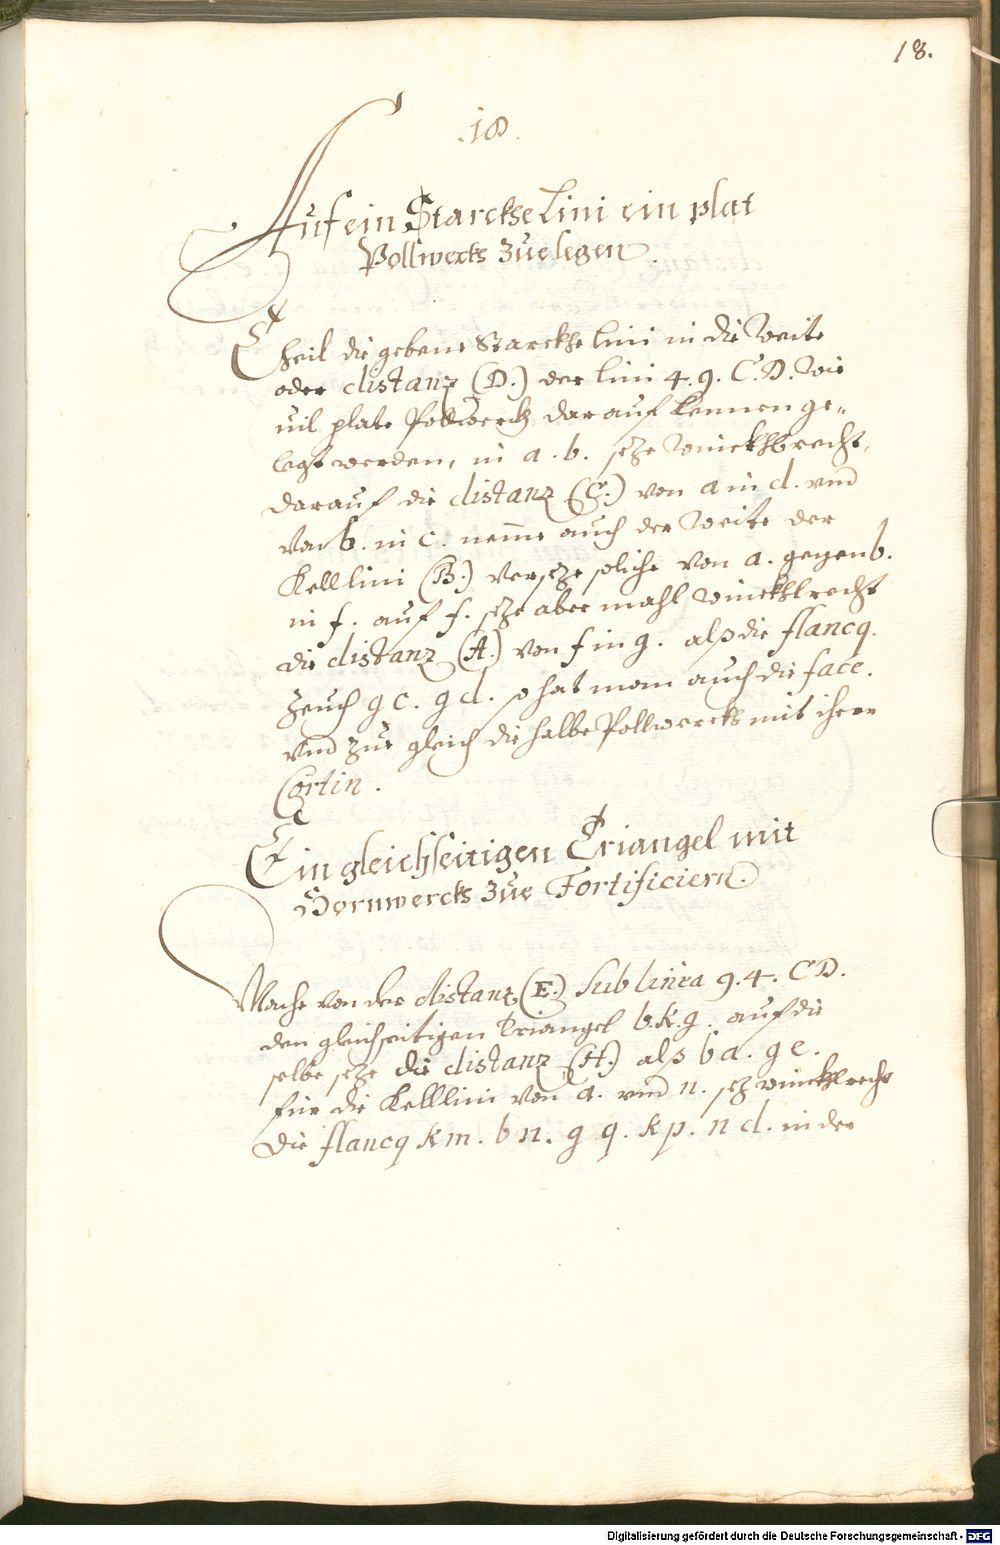 18.
.18.
Auf ein Starckhe Lini ein plat
Pollwercks Zue legen.
Theil die gebene Starckhe Lini in die Weite
oder distanz (D.) der lini 4. 9. C. D. Wie
uil plate Pollwerckh darauf kennen ge„
legt werden, in a. b. seze Winckhlrecht,
darauf die distanz (C.) von a in d. vnd
von b. in c. nemme auch der Weite der
Kelllini (B.) verseze soliche von a. gegen b.
in f. auf f. seze abermahl Winckhlrecht
die distanz (A.) von f in g. alß die flancq.
Zeuch g c. g d. so hat man auch die face.
vnd zue gleich die halbe Pollwercks mit ihrer
Cortin.
Ein gleichseitigen Triangel mit
Hornwercks Zue Fortificiern.
Mache von der distanz (E.) Sub linea 9. 4. C D.
den gleichseitigen Triangel b. k. g. auf die
selbe seze die distanz (H.) alß b a. g e.
für die Kelllini von a. vnd n. sez winckhlrecht
Die flancq k m. b n. g q. k p. n d. in der
Digitalisierung gefördert durch die Deutsche Forschungsgemeinschaft - DFG